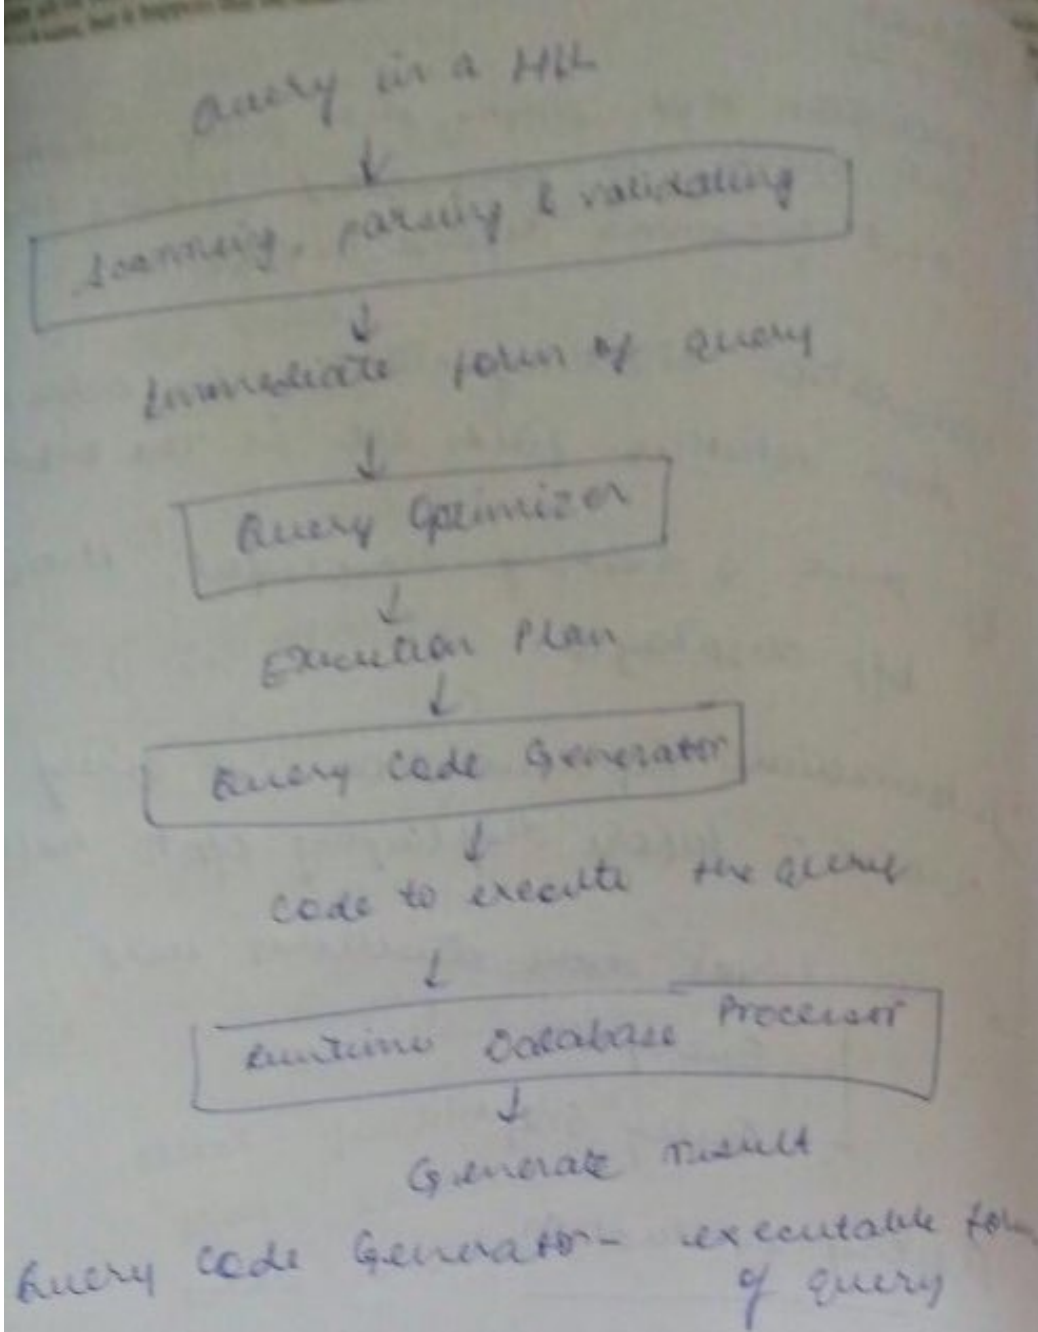 Query in a HLL
Scanning, parsing & validating
Immediate form of query
Query Optimizer
Execution Plan
Query Code Generator
Code to execute the query
Runtime Database Processor
Generate result
Query Code Generator - executable form
of query